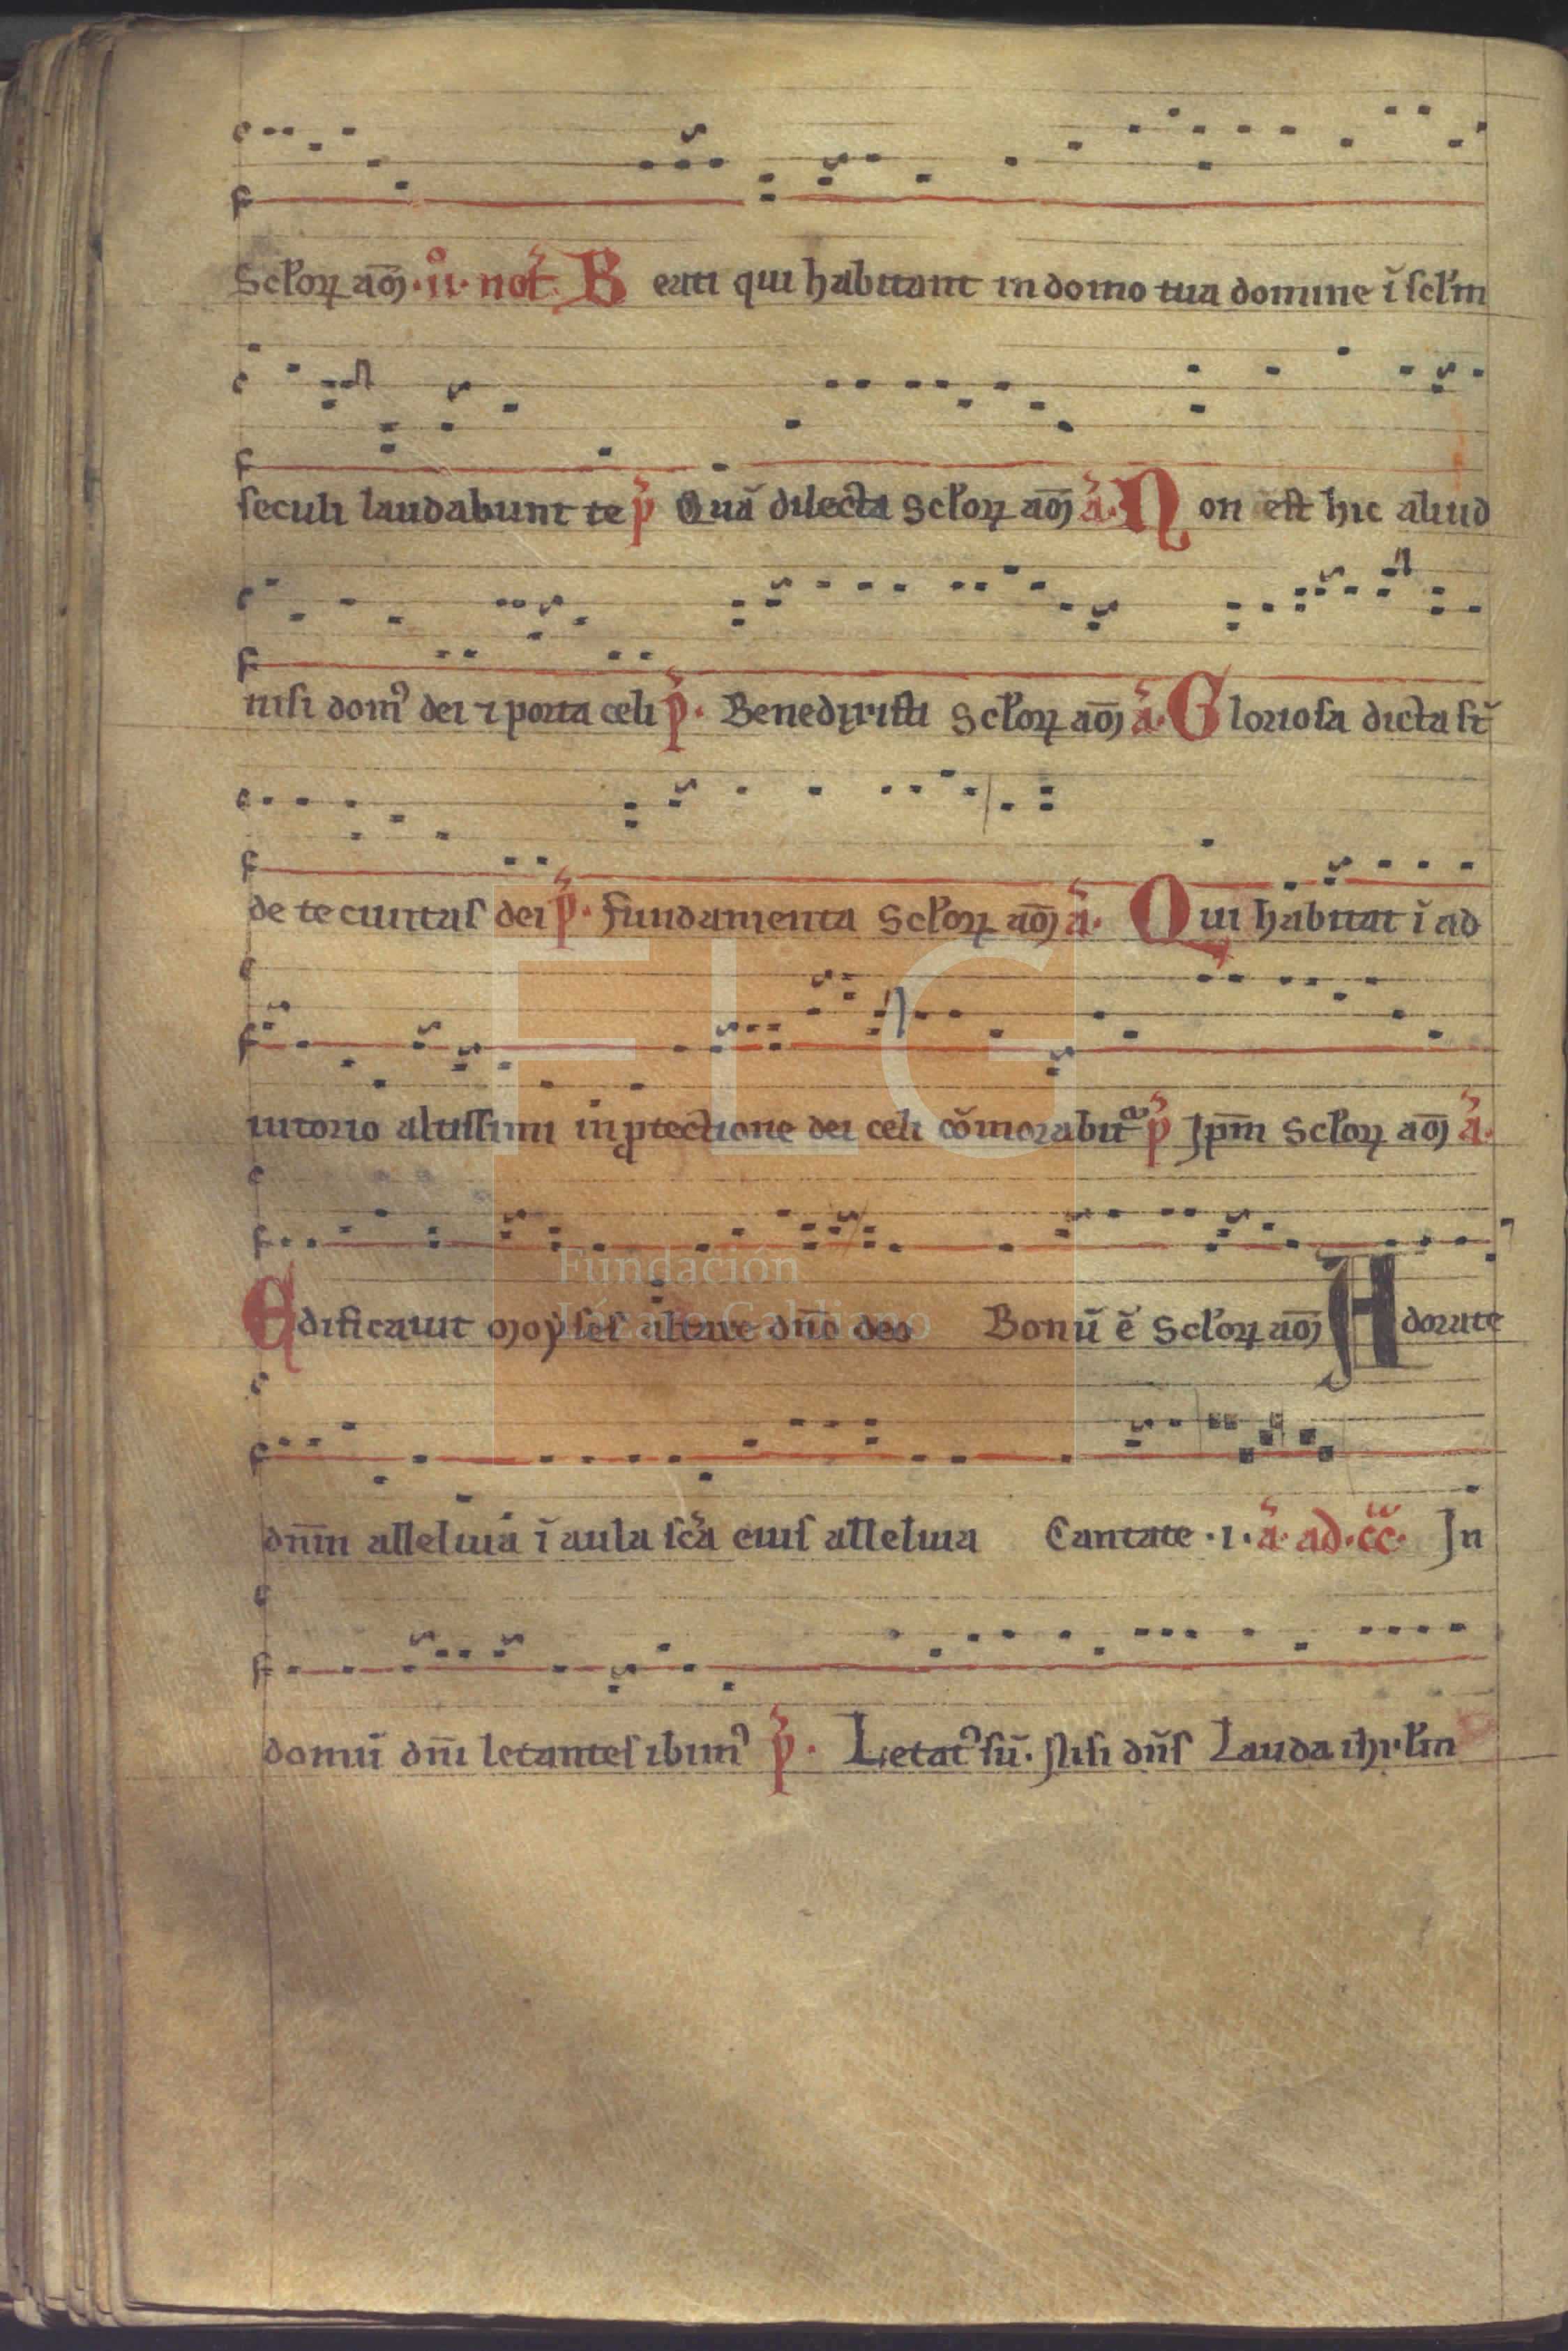 Sclˀoꝝ am̄ · ii · not̄ Beati qui habitant in domo tua domine ī sclˀm
seculi laudabunt te p̄ Quā dilecta Sclˀoꝝ am̄ ā · Non ēst hic aliud
nisi domꝰ dei ⁊ porta celi p̄ · Benedixisti Sclˀoꝝ am̄ ā · Gloriosa dicta st̄
de te ciuitas dei p̄ · fundamenta Sclˀoꝝ am̄ ā · Qui habitat ī ad
iutorio altissimi in ꝓtectione dei celi cōmorabitᵃ p̄ Ip̄m Sclˀoꝝ am̄ ā ·
Edificauit moẏses altare dn̄o deo Bonū ē Sclˀoꝝ am̄ Adorate
dn̄m alleluia ī aula sc̄a eius alleluia Cantate · i · ā · ad · c̄c̄ · In
domū dn̄i letantes ibimꝰ p̄ · Letatꝰ sū · Nisi dn̄s Lauda ihrˀlm
FLG
Fundación
Lázaro Galdiano